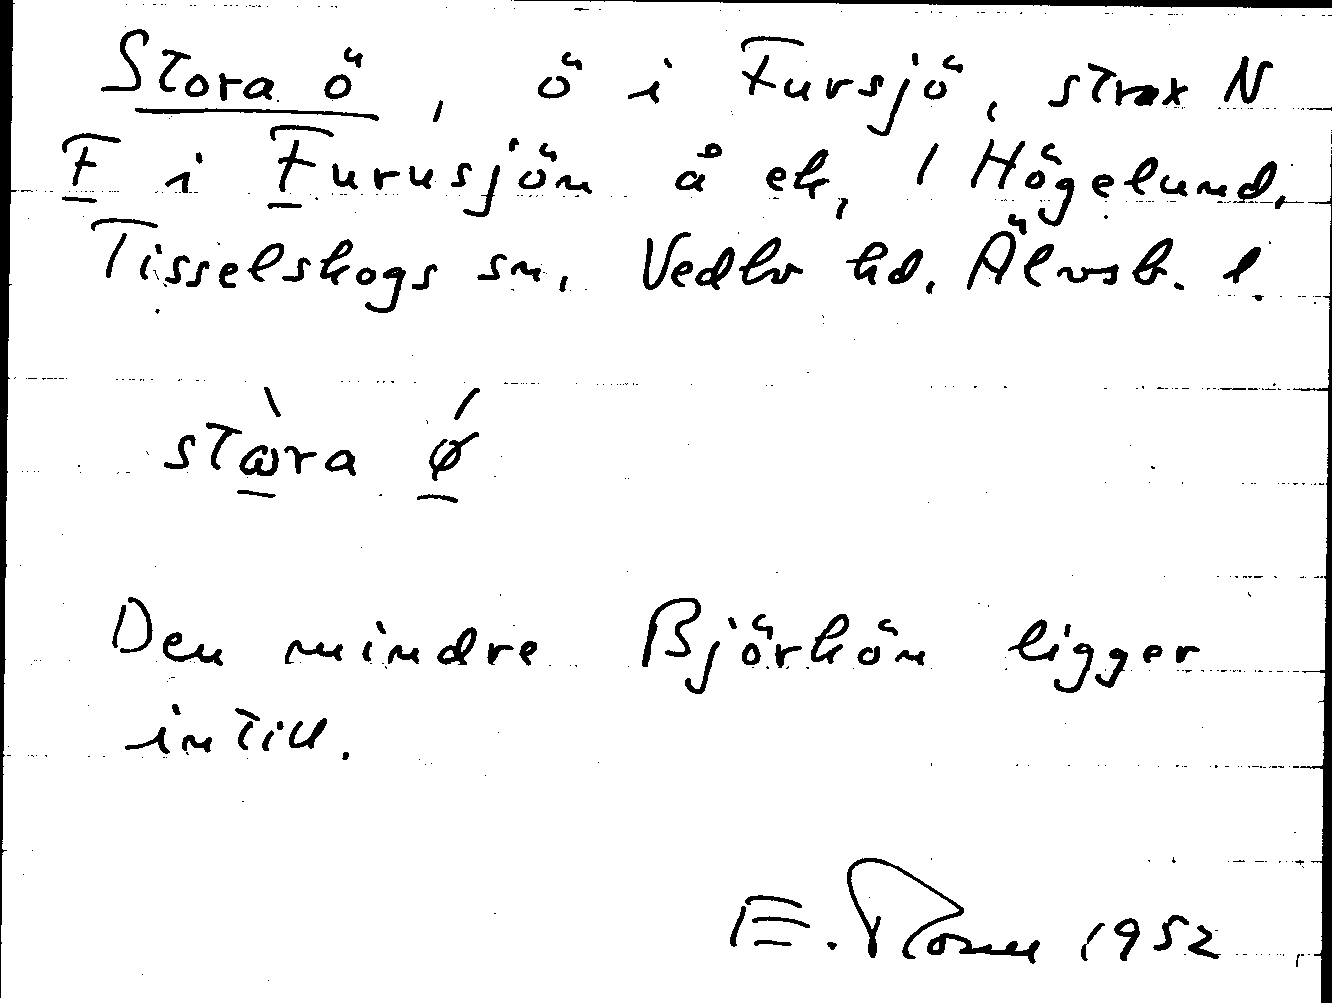 Stora ö, ö i Fursjö, strax N
F i Furusjön å ek, 1 Högelund,
Tisselskogs sn, Vedbo hd, Älvsb. l.
stꞷ̀ra ǿ
Den mindre Björkön ligger
intill.
E. 1952